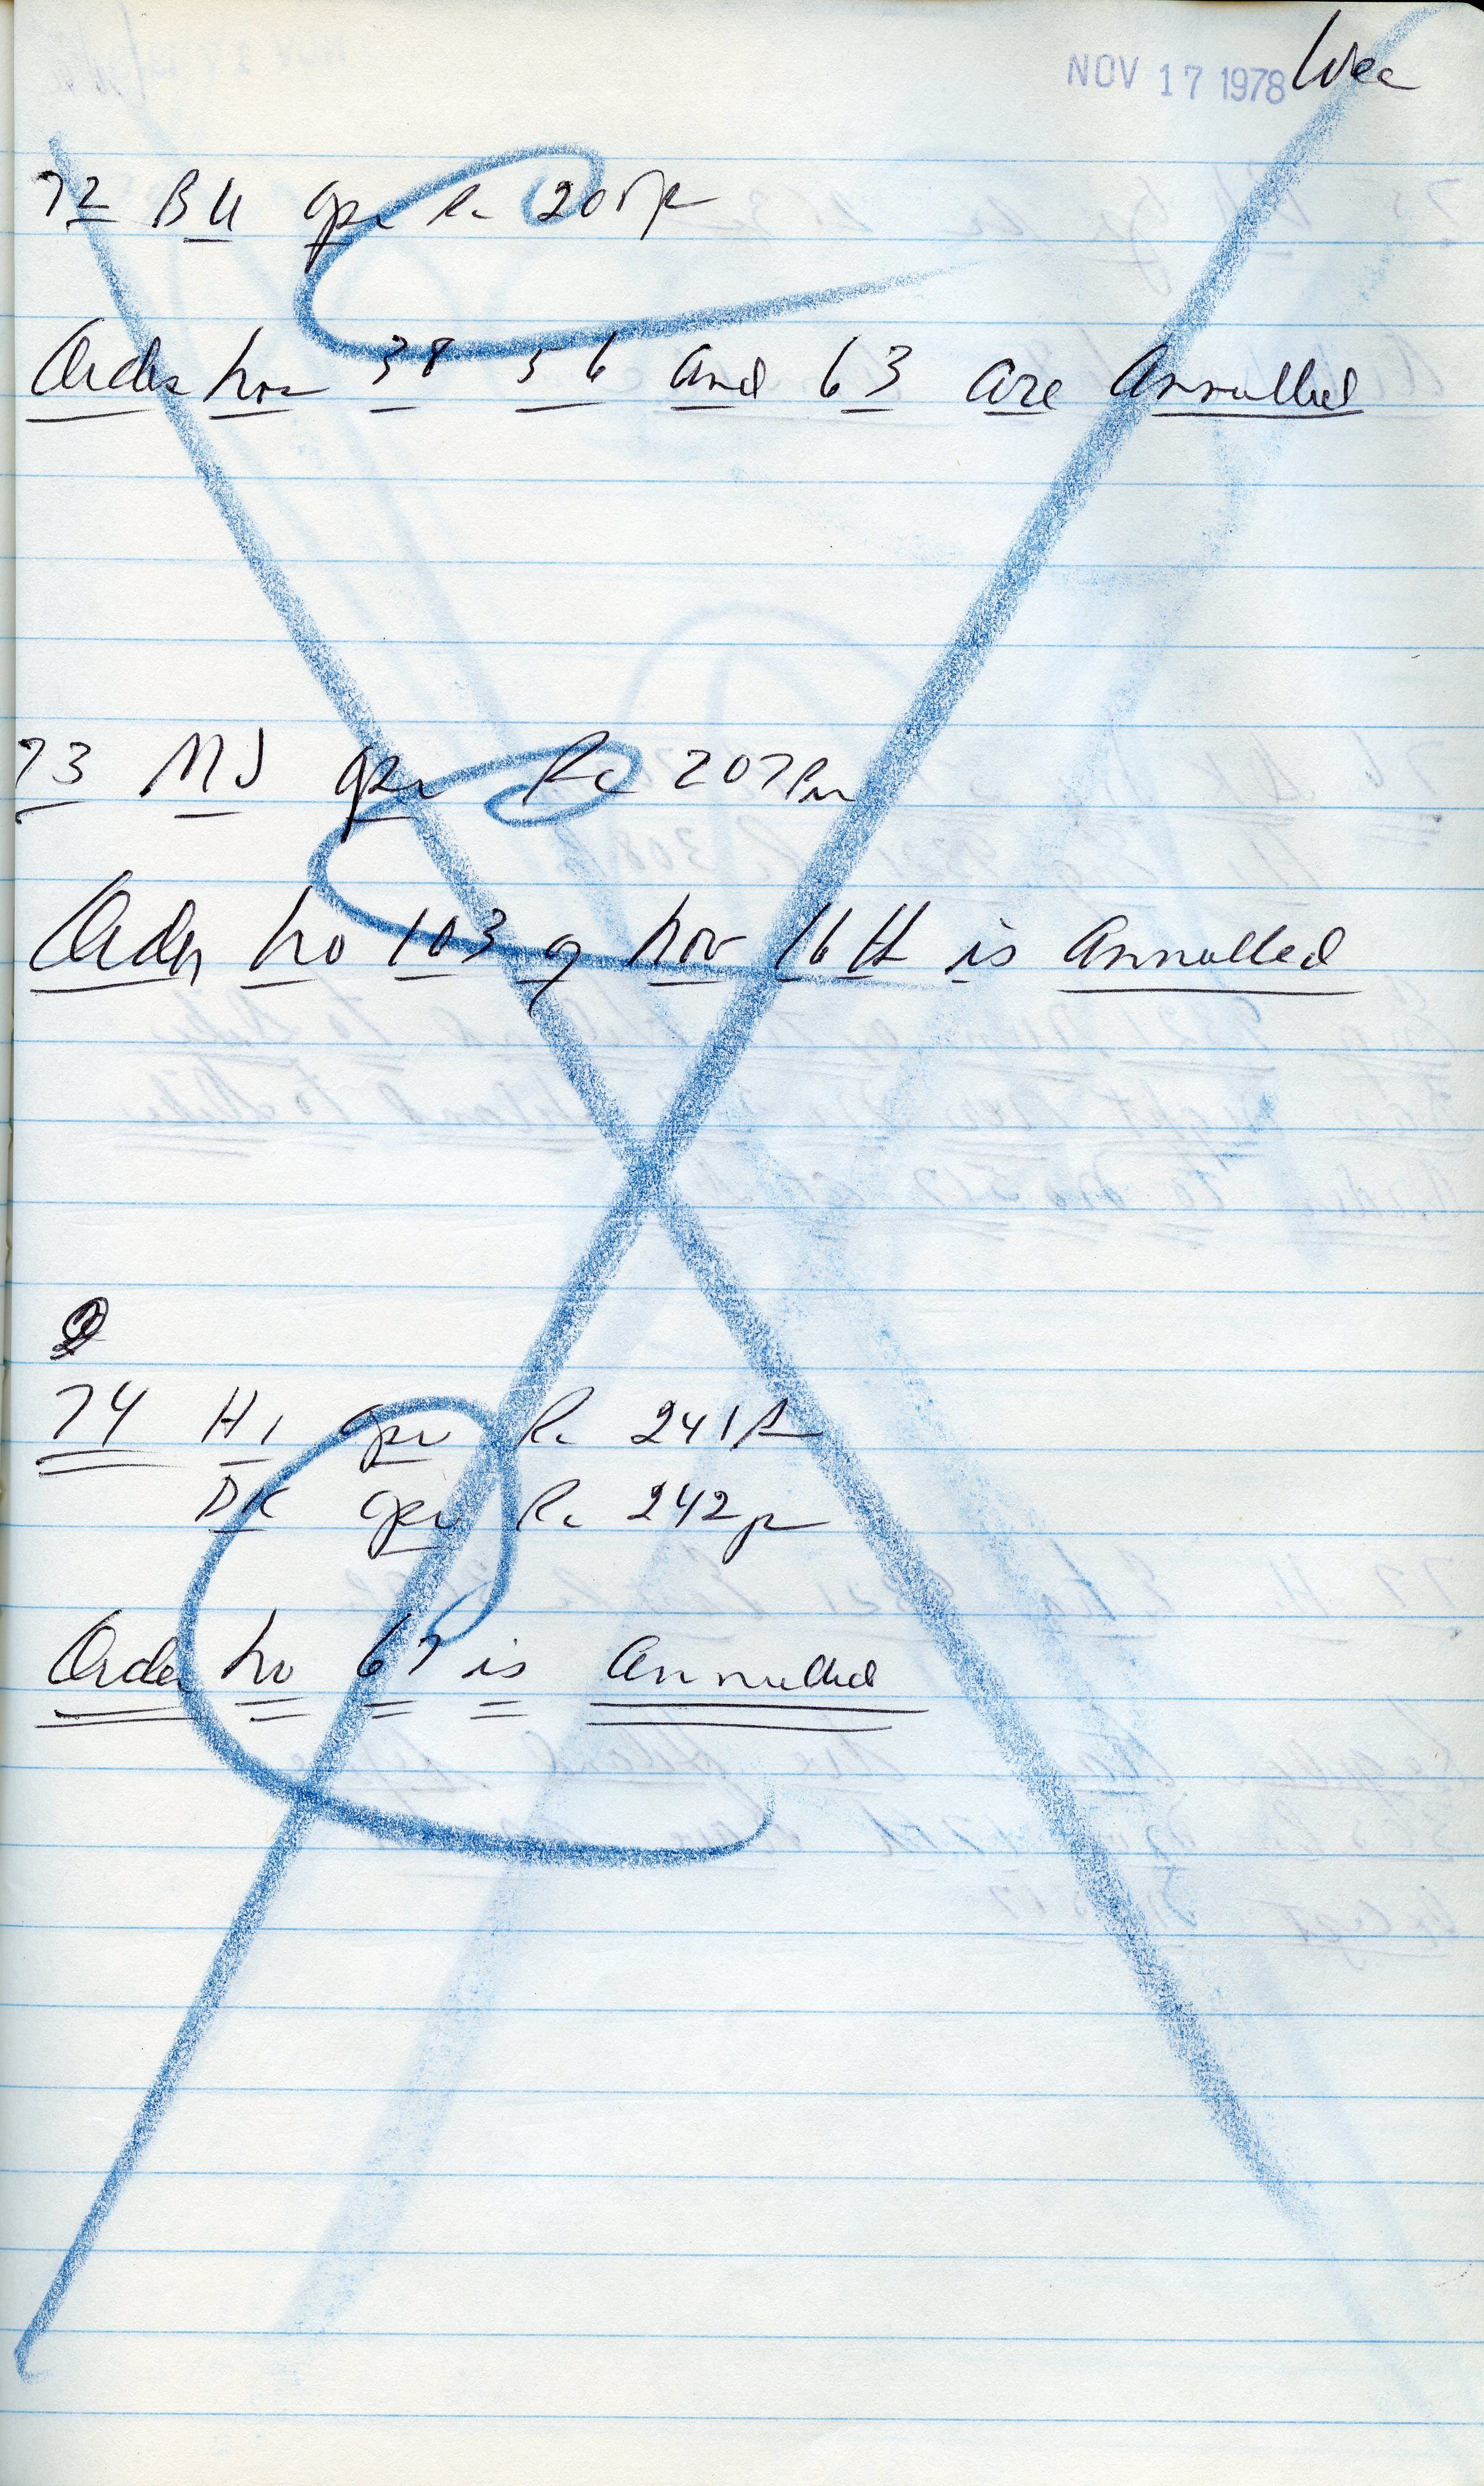 NOV 17 1978
72 BU opr Rc 205p
Orders nos 38 56 and 63 are Annulled
73 MJ opr Rc 207Pm
Order no 103 of nov 16th is Annulled
74 HI opr Rc 241P
DK opr Rc 242p
Order no 67 is Annulled